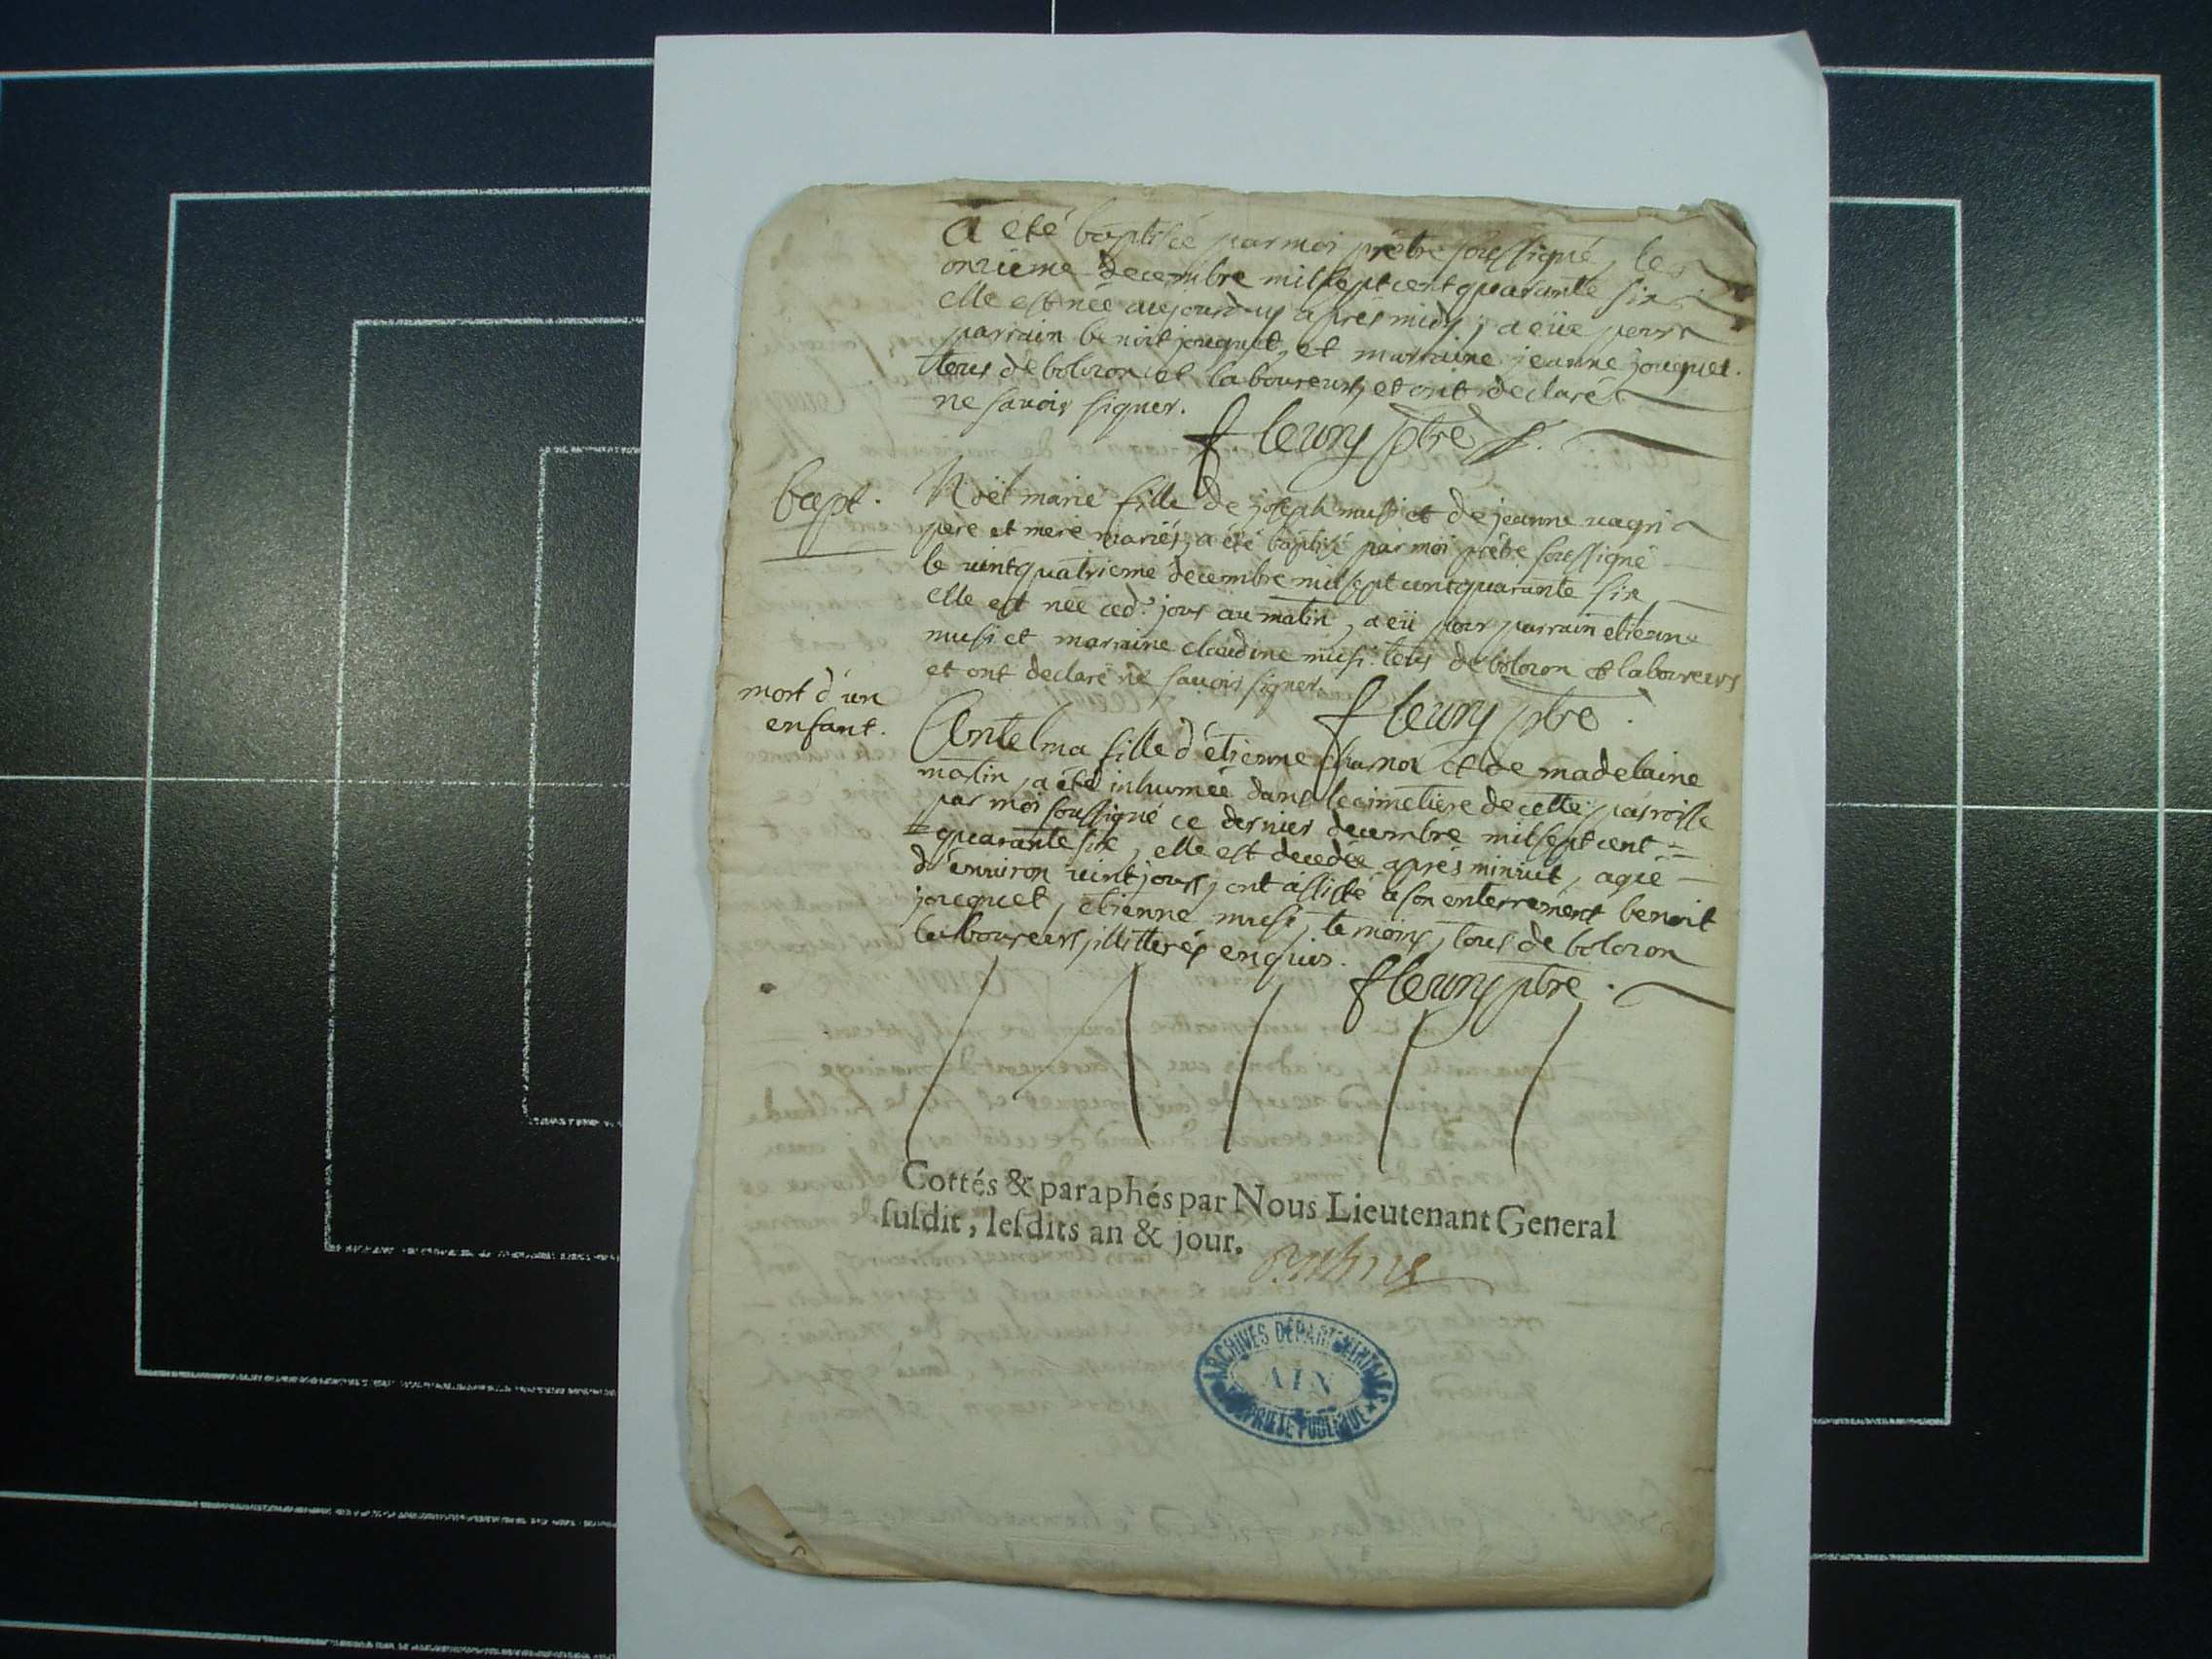 a eté baptisée par moi prêtre soussigné, le
onzieme decembre mil sept cent quarante six
elle est née aujourduy apres midy, a eüe pour
parrain benoit jouquet, et marraine jeanne jouquet.
tous de bolozon et laboureurs, et ont declaré
ne savoir signer.
fleury ptre
bapt.
Nöel marie fille de joseph musi et de jeanne
pere et mere mariés, a été baptisé par moi prêtre soussigné
le vintquatrieme decembre mil sept cent quarante six
elle est née ced. jour au matin, a eü pour parrain etienne
musi et marraine claudine musi. tous de bolozon et laboureurs
et ont declaré ne savoir signer.
fleury ptre.
mort d'un
enfant.
Antelma fille d'étienne et de madelaine
a été inhumée dans le cimetiere de cette parroisse
par moi soussigné ce dernier decembre mil sept cent =
= quarante six, elle est decedée après minuit, agée
d'environ vint jours, ont assisté a son enterrement benoit
jouquet, etienne musi, temoins, tous de bolozon
laboureurs, illitterés enquis.
fleury ptre.
Cottés & paraphés par Nous Lieutenant General
susdit, lesdits an & jour.
ARCHIVES DÉPARTEMENTALES
AIN
PROPRIÉTÉ PUBLIQUE